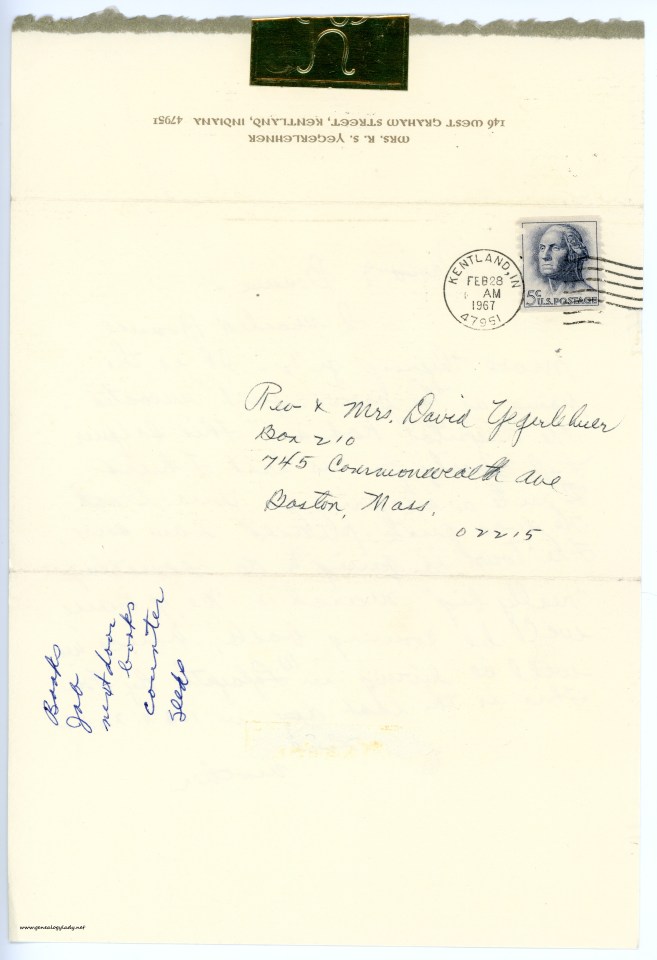 MRS. R. S. YEGERLEHNER
146 WEST GRAHAM STREET, KENTLAND, INDIANA 47951
KENTLAND, IN
FEB 28
AM
1967
47951
5c
U.S. POSTAGE
Rev & Mrs. David Yegerlehner
Box 210
745 Commonwealth Ave
Boston, Mass.
02215
Books
Job
next door
books
counter
seeds
www.genealogylady.net